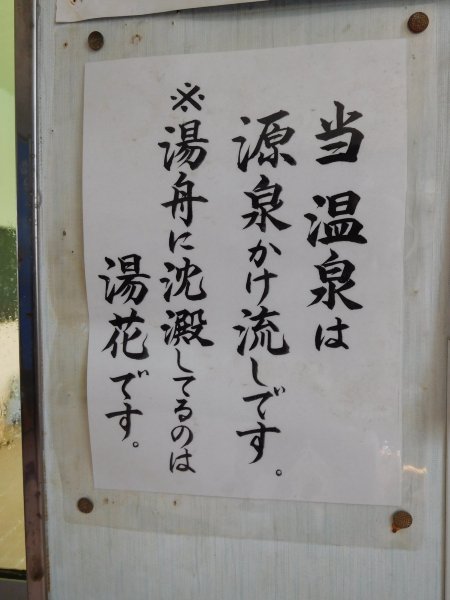 当温泉は
源泉かけ流しです。
※湯舟に沈澱してるのは
湯花です。